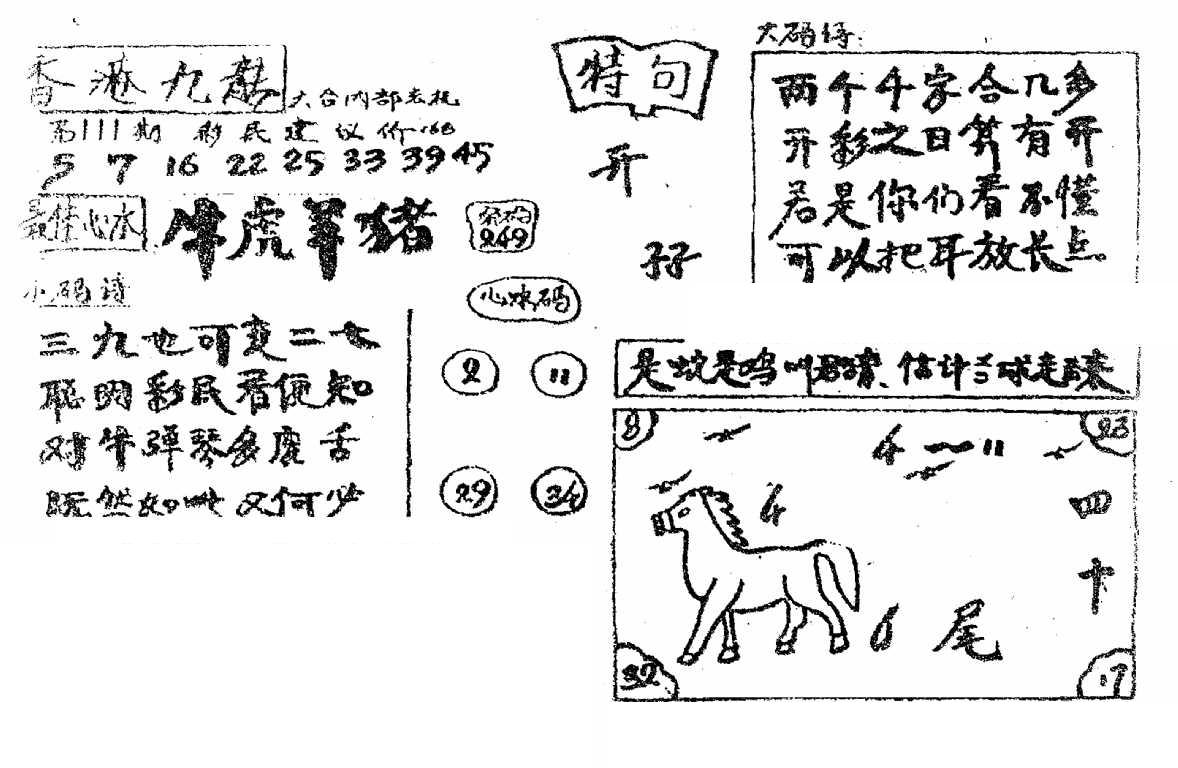 香港九龍
六合内部老板
第111期 彩民建议价
5 7 16 22 25 33 39 45
最佳心水
牛虎羊猪
249
小码诗
三九也可变二七
聪明彩民看便知
对牛弹琴多费舌
既然如此又何必
心水码
2 11
29 34
特句
开
孖
大码诗:
两个千字合几多
开彩之日算有开
若是你们看不懂
可以把耳放长点
是蛇是鸡叫
估计
8
23
4 11
4
四
十
6尾
32
17